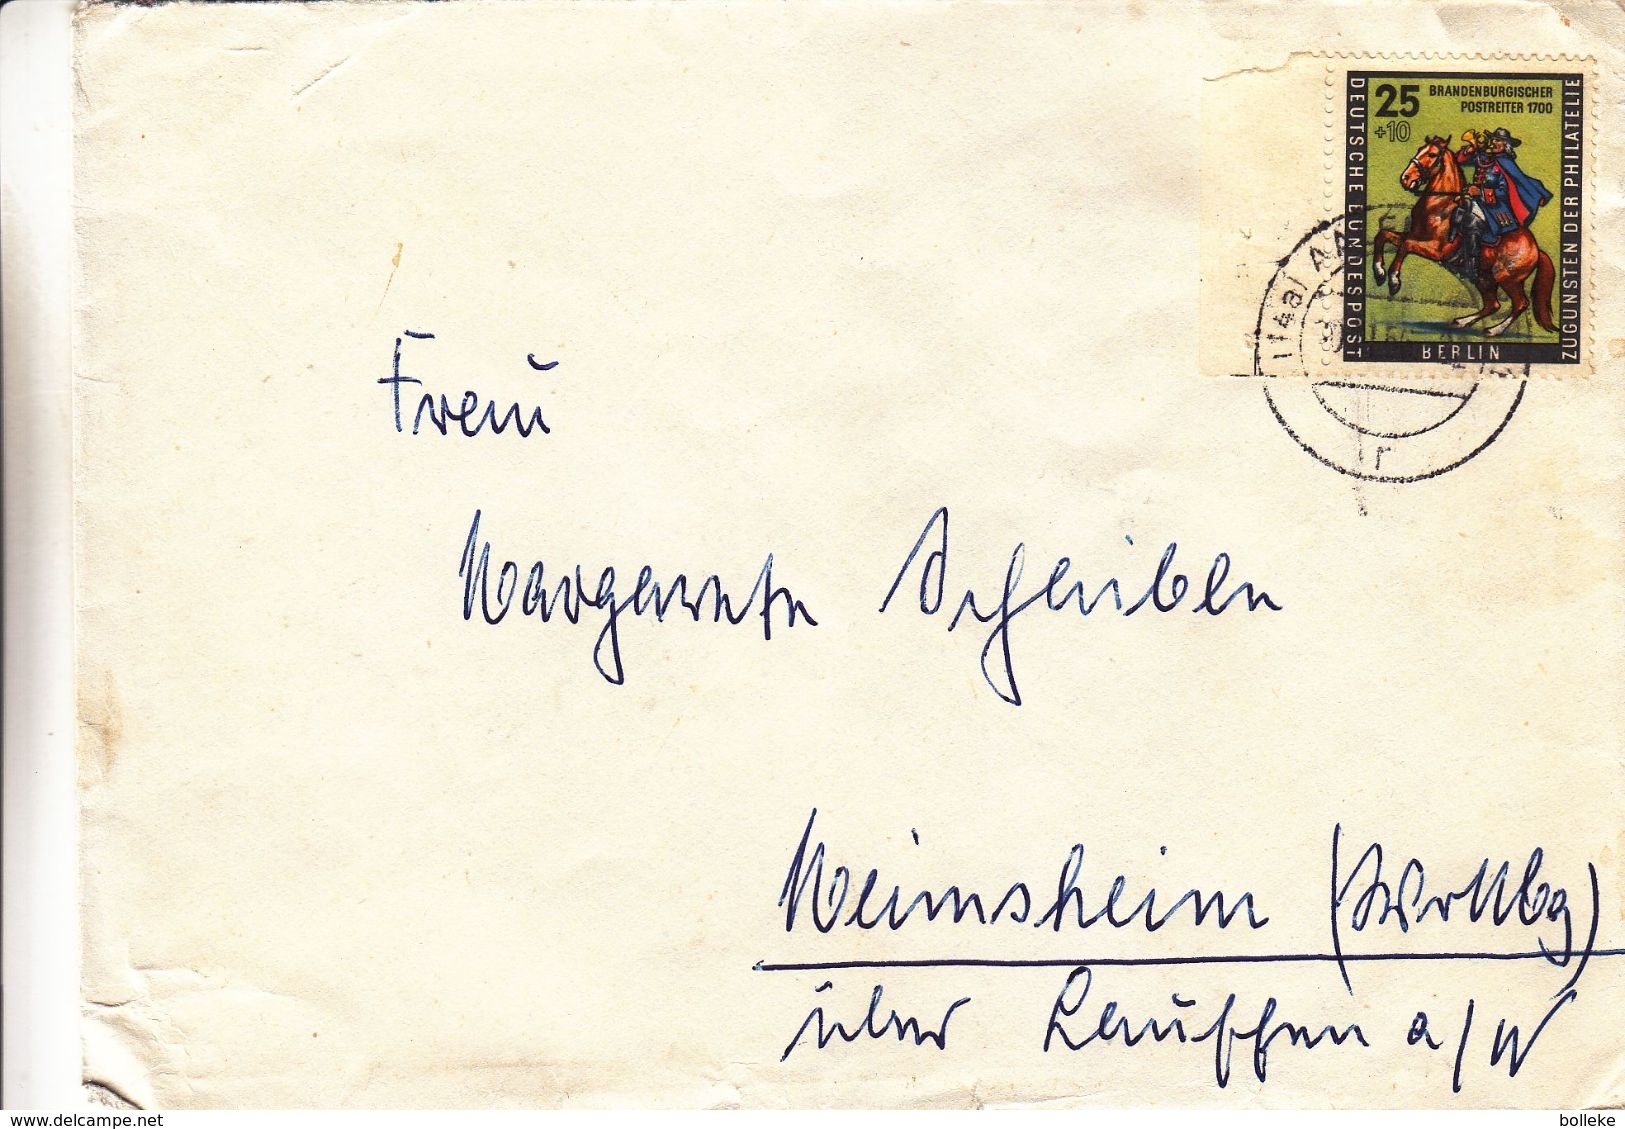 25 BRANDENBURGISCHER
+10 POSTREITER 1700
DEUTSCHE BUNDESPOST
BERLIN
ZUGUNSTEN DER PHILATELIE
(14a)
r
Frau
Margarete Scheible
Meimsheim (Wrttbg)
über Lauffen a/N
www.delcampe.net
bolleke